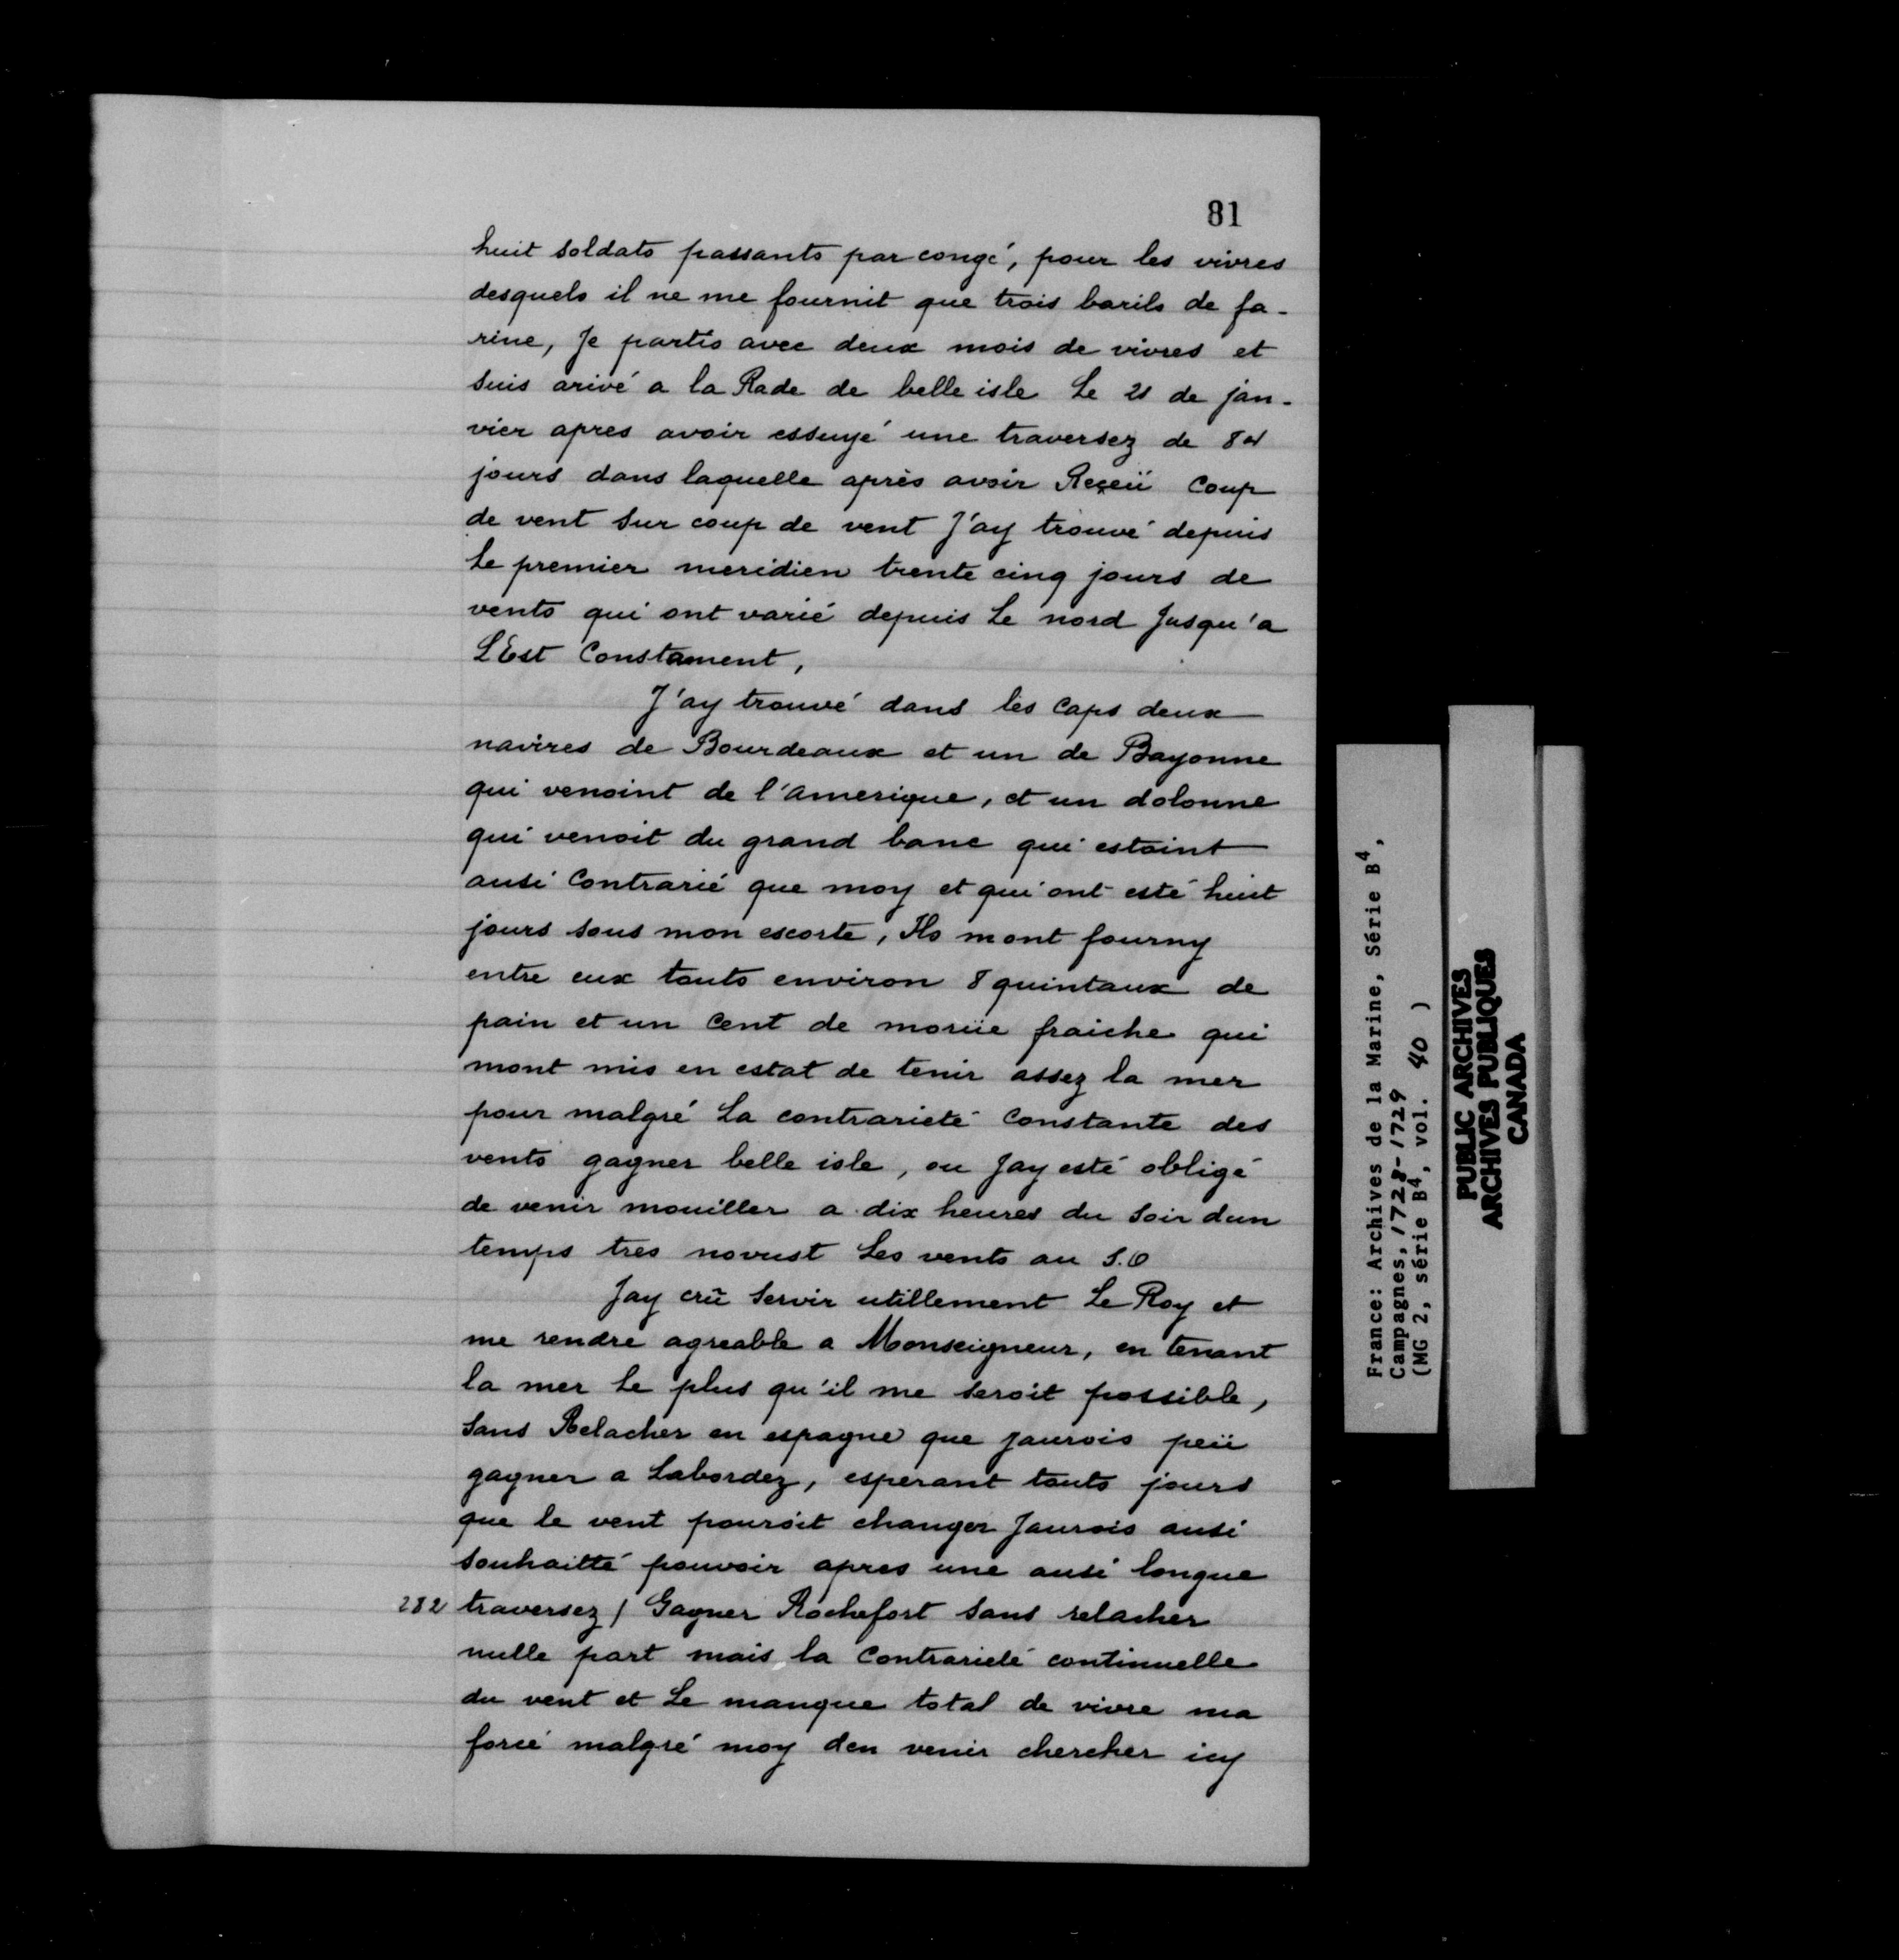 81
huit soldats passants par congé, pour les vivres
desquels il ne me fournit que trois barils de fa-
rine, Je partis avec deux mois de vivres et
suis arivé a la Rade de belle isle Le 21 de jan-
vier apres avoir essuyé une traversez de 84
jours dans laquelle après avoir Reçeü Coup
de vent sur coup de vent J'ay trouvé depuis
Le premier meridien trente cinq jours de
vents qui ont varié depuis Le nord Jusqu'a
L'Est Constament,
J'ay trouvé dans les Caps deux
navires de Bourdeaux et un de Bayonne
qui venoint de l'amerique, et un dolonne
qui venoit du grand banc qui estoint
ausi Contrarié que moy et qui ont esté huit
jours sous mon escorte, Ils mont fourny
entre eux touts environ 8 quintaux de
pain et un Cent de moruë fraiche qui
mont mis en estat de tenir assez la mer
pour malgré La contrarieté Constante des
vents gagner belle isle, ou Jay esté obligé
de venir mouiller a dix heures du Soir dun
temps tres novust Les vents au S.O
Jay crû Servir utillement Le Roy et
me rendre agreable a Monseigneur, en tenant
la mer Le plus qu'il me seroit possible,
Sans Relacher en espagne que jaurois peü
gagner a Labordez, esperant touts jours
que le vent pouroit changer Jaurois ausi
souhaitté pouvoir apres une ausi longue
282 traversez / Gagner Rochefort sans relacher
nulle part mais la Contrarieté continuelle
du vent et Le manque total de vivre ma
forcé malgré moy den venir chercher icy
France: Archives de la Marine, Série B4,
Campagnes, 1728-1729
(MG 2, série B4, vol. 40 )
PUBLIC ARCHIVES
ARCHIVES PUBLIQUES
CANADA